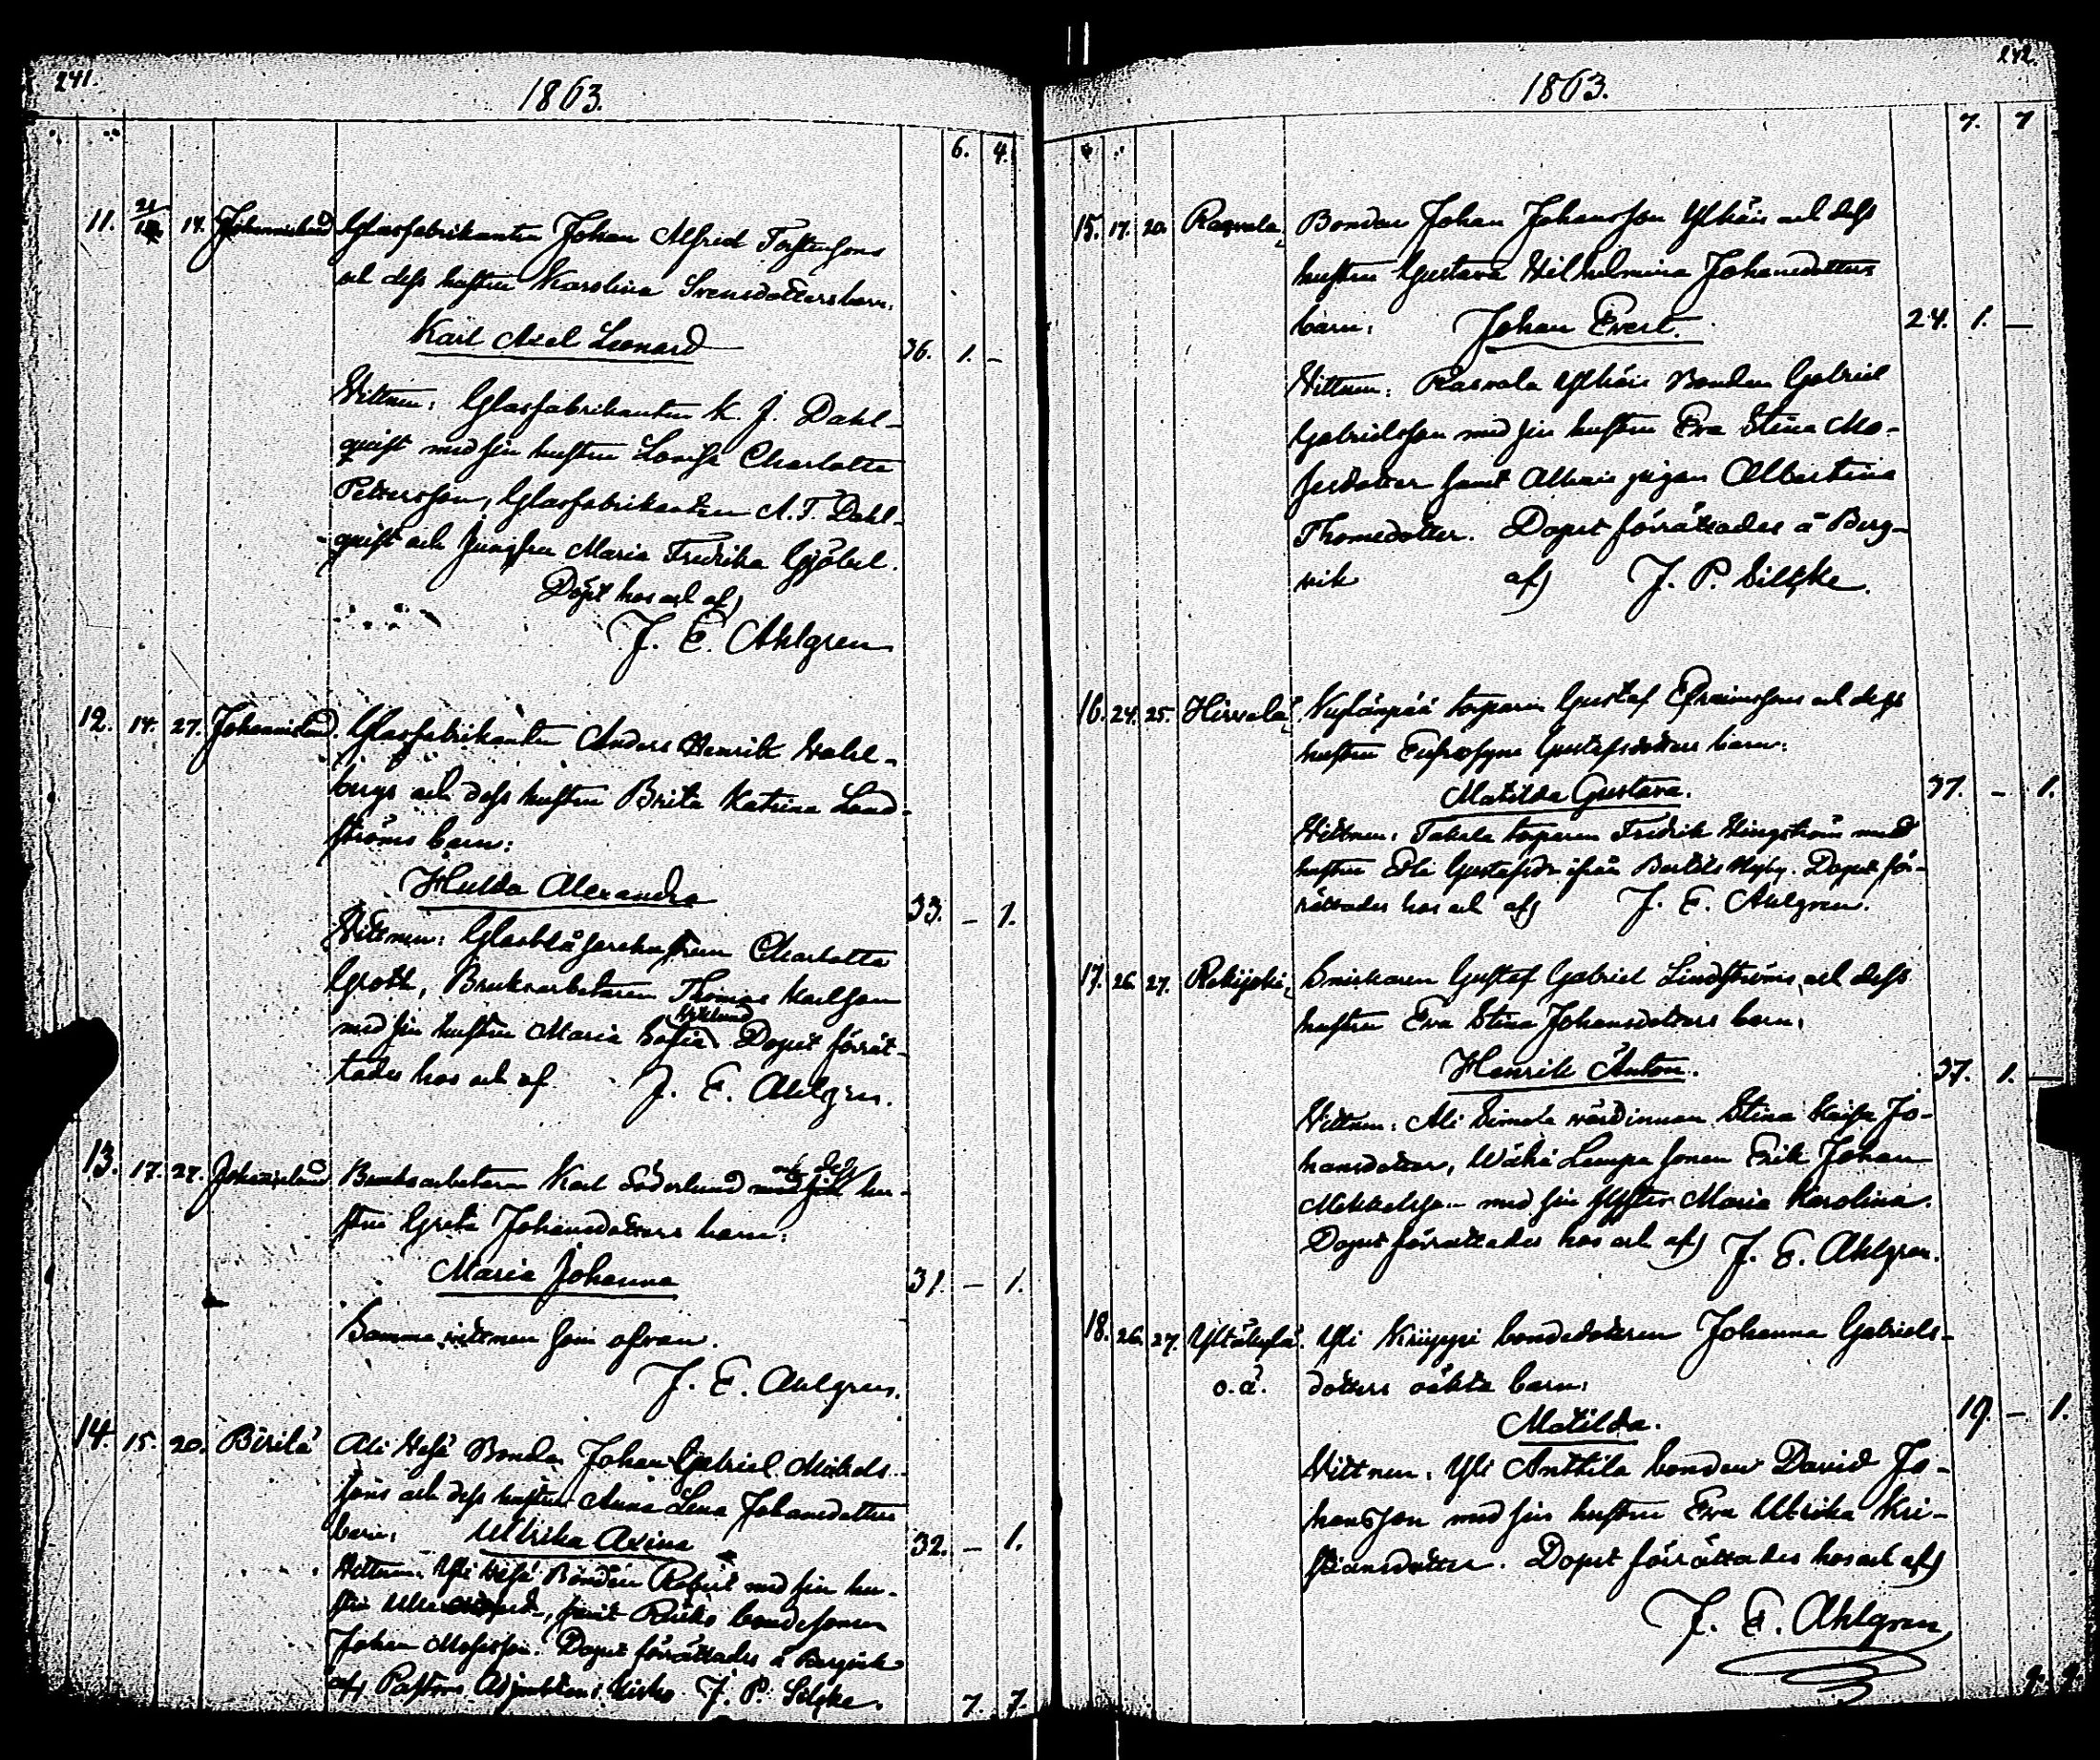 241.
1863.
6. 4.
11. 21/12 14. Johannislund Glasfabrikanten Johan Alfred Torstensons
och dess hustru Karolina Svensdotters barn:
Karl Axel Leonard 36. 1. –
Vittnen: Glasfabrikanten K. J. Dahl-
quist med sin hustru Lovisa Charlotta
Pettersson, Glasfabrikanten A. T. Dahl-
quist och Jungfru Maria Fredrika Gjöbel.
Döpt hos och af
J. E. Ahlgren
12. 14. 27. Johannislund. Glasfabrikanten Anders Henrik Wahl-
bergs och dess hustru Brita Katrina Land-
ströms barn:
Hulda Alexandra 33. – 1.
Vittnen: Glasblåsarehustrun Charlotta
Groth, Bruksarbetaren Thomas Karlsson
med sin hustru Maria Sofia Wiklund Dopet förrät-
tades hos och af J. E. Ahlgren.
13. 17. 27. Johannislund Bruksarbetaren Karl Söderlund med sin och dess hu-
stru Greta Johansdotters barn:
Maria Johanna 31. – 1.
Samma vittnen som ofvan.
J. E. Ahlgren.
14. 15. 20. Pirilä Ali Bonden Johan Gabriel
sons och dess hustru Anna Lena Johansdotters
barn: Ulrika Axina 32. – 1.
Vittnen: Yli Bonden Robert med sin hu-
stru samt bondesonen
Johan Mosisson. Dopet förrättades å Bergvik
af Pastors Adjunkten i Kisko J. P. Siltske.
7. 7.
242.
1863.
7. 7
15. 17. 20. Rasvala, Bonden Johan Johansson Ylhäis och dess
hustru Gustava Wilhelmina Johansdotters
barn: Johan Evert. 24. 1. –
Vittnen: Rasvala Ylhäis Bonden Gabriel
Gabrielsson med sin hustru Eva Stina Mo-
sesdotter samt pigan Albertina
Thomedotter. Dopet förrättades å Berg-
vik af J. P. Siltske.
16. 24. 25. Hirvelä, torparen Gustaf Efraimsons och dess
hustru Eufrosyne Gustafsdotters barn:
Matilda Gustava. 37. – 1.
Vittnen: Takala torparen Fredrik Wingström med
hustru Edla Gustafsdr ifrån Bertils Myby. Dopet för-
rättades hos och af J. E. Ahlgren.
17. 26. 27. Rekijoki, Snickaren Gustaf Gabriel Lindströms och dess
hustru Eva Stina Johansdotters barn:
Henrik Anton. 37. 1. –
Vittnen: Ali Simola värdinnan Stina Kaisa Jo-
hansdotter, Wähä Lempa sonen Erik Johan
Mikkelsson med sin syster Maria Karolina.
Dopet förrättades hos och af J. E. Ahlgren.
18. 26. 27. Yltäkylä. Yli Knuppi bondedottren Johanna Gabriels-
o. ä. dotters oäkta barn:
Matilda. 19. – 1.
Vittnen: Yli Anttila bonden David Jo-
hansson med sin hustru Eva Ulrika Kri-
stiansdotter. Dopet förrättades hos och af
J. E. Ahlgren,
9. 9.